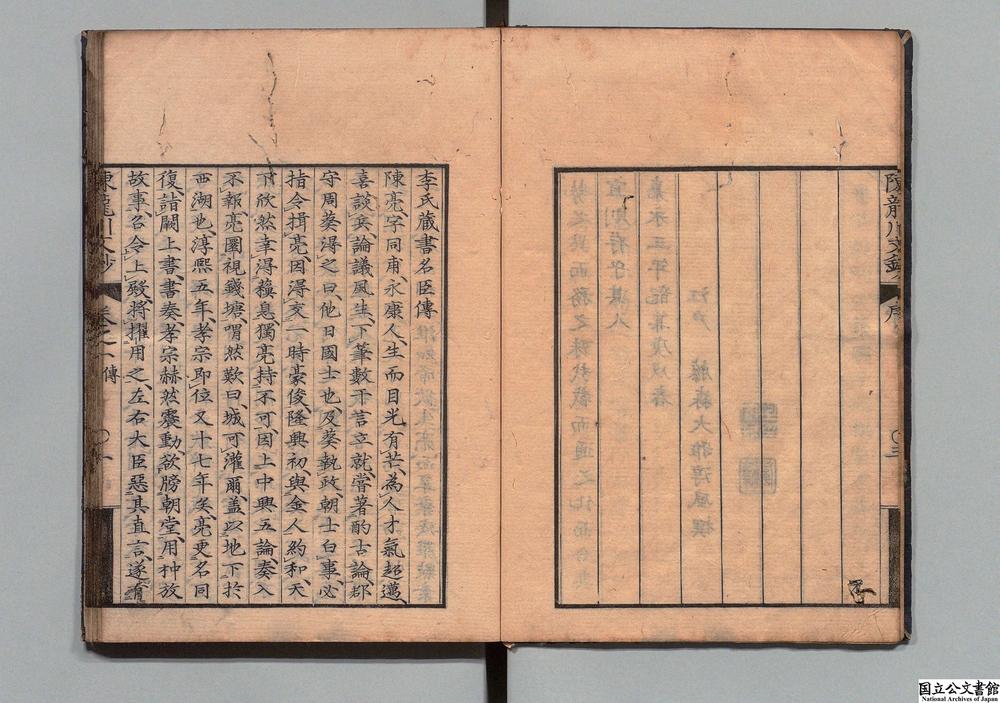 李氏藏書名臣傳
陳亮字同甫永康人生而目光有芒為人才氣超邁
喜談兵論議風生下筆數千言立就嘗著酌古論郡
守周葵淂之曰他日國士也及葵執政朝士白事必
指令揖亮因淂交一時豪俊隆興初與金人約和天
下欣然幸淂穌息獨亮持不可因上中興五論奏入
不報亮圜視錢塘喟然歎曰城可灌爾盖以地下於
西湖也淳熙五年孝宗即位又十七年矣亮更名同
復詣闕上書書奏孝宗赫然震動欲牓朝堂用种放
故事召令上殿將擢用之左右大臣惡其直言遂有
陳龍川文鈔
卷之一 傳
〇一
陳龍川文鈔
序
〇三
国立公文書館
National Archives of Japan